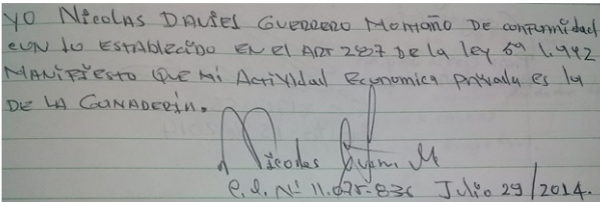 YO NICOLAS DANIEL GUERRERO MONTAÑO DE conformidad
CON LO ESTABLECIDO EN el ART 287 DE la ley 5ª 1.992
MANIFIESTO QUE Mi Actividad Economica privada es la
DE LA GANADERÍA.
Nicolas Guerr. M
C.C. Nº 11.075.836 Julio 29/2014.